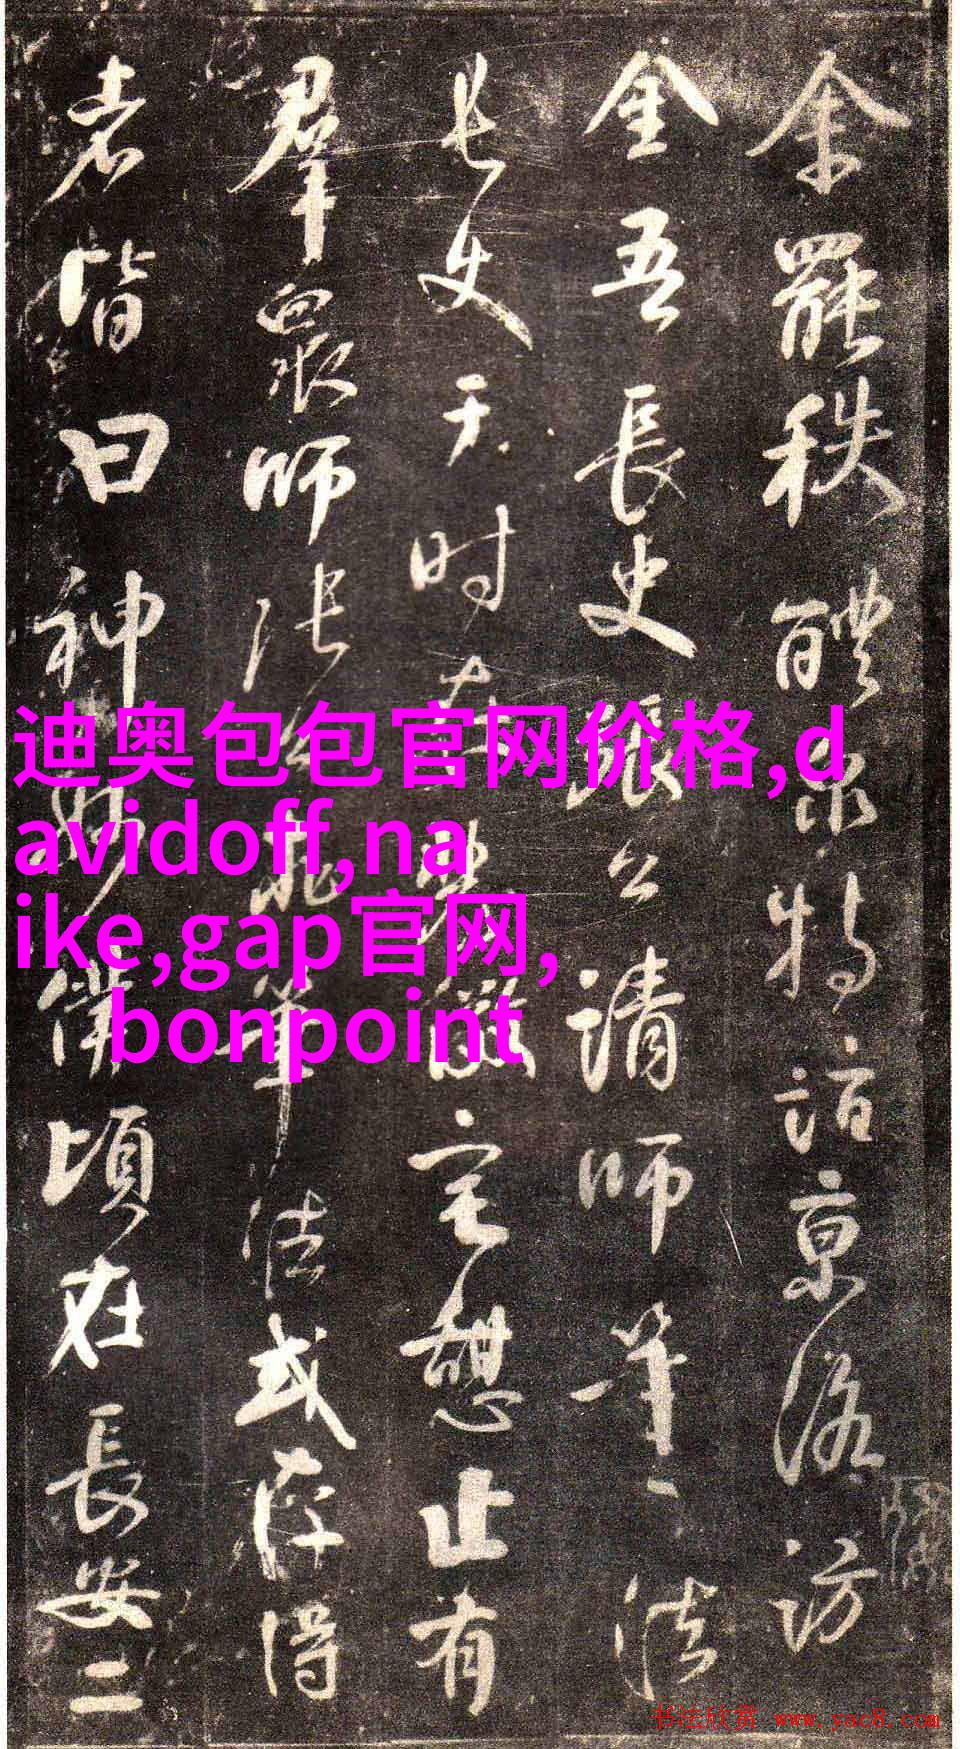 余罷秩醴泉特詣京洛訪
金吾長史張公請師筆法
長史于时在裴儆宅憩止有
羣眾師張公求筆法或存得
者皆曰神妙僕頃在長安二
迪奥包包官网价格,d
avidoff,na
ike,gap官网,
bonpoint
书法欣赏 www.yac8.com